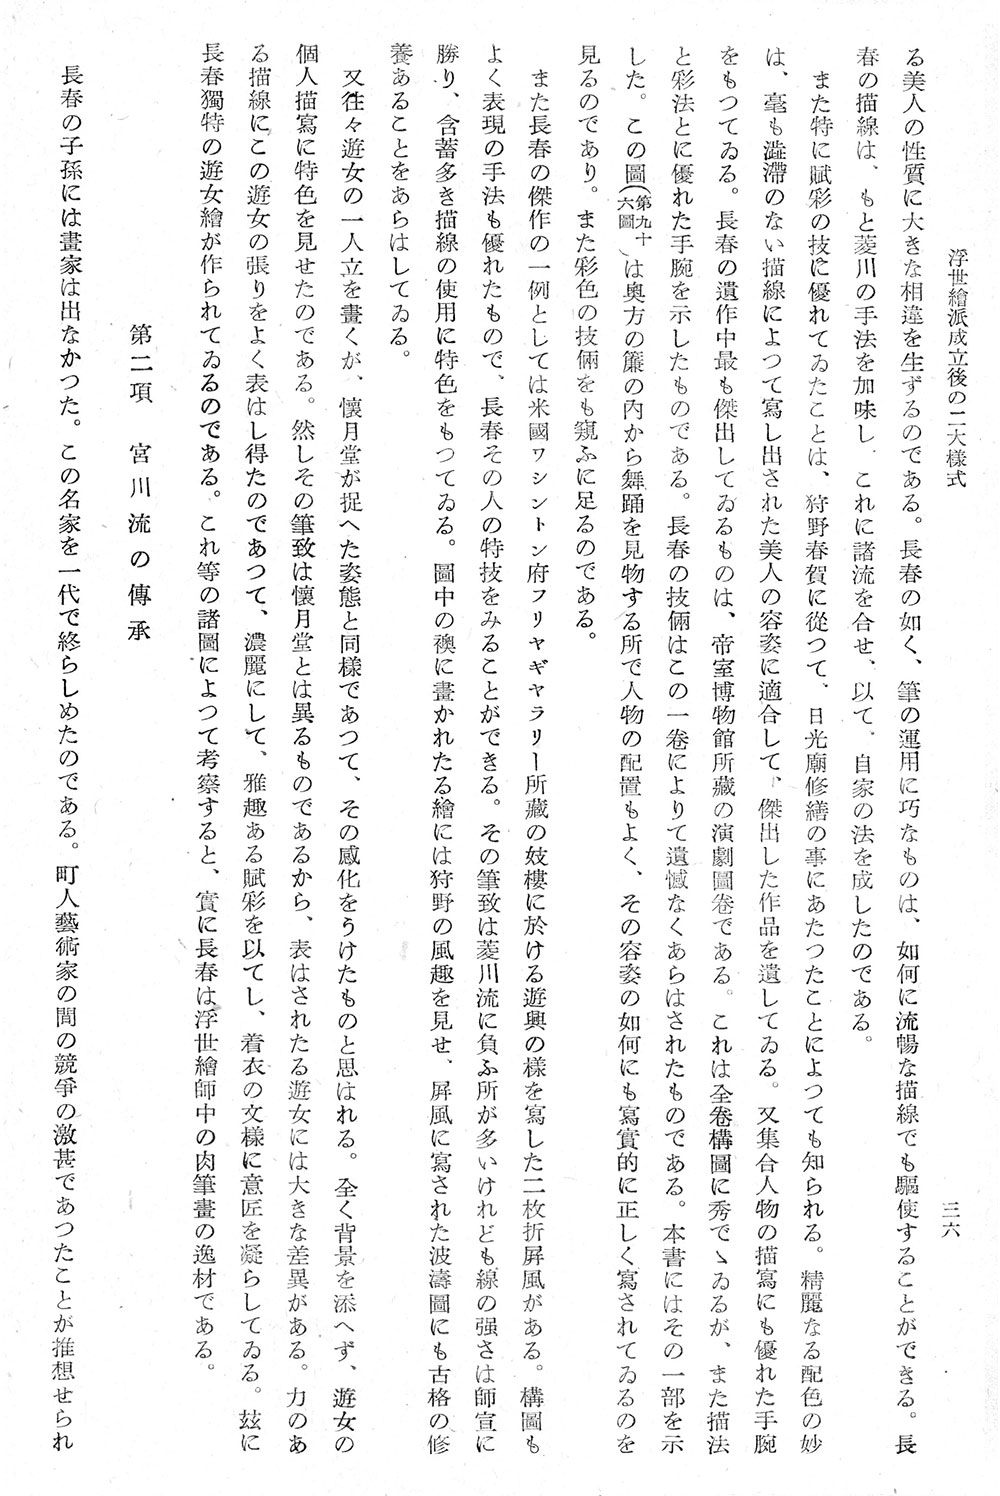 浮世繪派成立後の二大樣式
三六
る美人の性質に大きな相違を生ずるのである。長春の如く、筆の運用に巧なものは、如何に流暢な描線でも驅使することができる。長
春の描線は、もと菱川の手法を加味し、これに諸流を合せ、以て、自家の法を成したのである。
また特に賦彩の技に優れてゐたことは、狩野春賀に從つて、日光廟修繕の事にあたつたことによつても知られる。精麗なる配色の妙
は、毫も澁滯のない描線によつて寫し出された美人の容姿に適合して、傑出した作品を遺してゐる。又集合人物の描寫にも優れた手腕
をもつてゐる。長春の遺作中最も傑出してゐるものは、帝室博物館所藏の演劇圖卷である。これは全卷構圖に秀でゝゐるが、また描法
と彩法とに優れた手腕を示したものである。長春の技倆はこの一卷によりて遺憾なくあらはされたものである。本書にはその一部を示
した。この圖(第九十六圖)は奧方の簾の內から舞踊を見物する所で人物の配置もよく、その容姿の如何にも寫實的に正しく寫されてゐるのを
見るのであり。また彩色の技倆をも窺ふに足るのである。
また長春の傑作の一例としては米國ワシントン府フリヤギャラリー所藏の妓樓に於ける遊興の樣を寫した二枚折屏風がある。構圖も
よく表現の手法も優れたもので、長春その人の特技をみることができる。その筆致は菱川流に負ふ所が多いけれども線の强さは師宣に
勝り、含蓄多き描線の使用に特色をもつてゐる。圖中の襖に畫かれたる繪には狩野の風趣を見せ、屏風に寫された波濤圖にも古格の修
養あることをあらはしてゐる。
又往々遊女の一人立を畫くが、懷月堂が捉へた姿態と同樣であつて、その感化をうけたものと思はれる。全く背景を添へず、遊女の
個人描寫に特色を見せたのである。然しその筆致は懷月堂とは異るものであるから、表はされたる遊女には大きな差異がある。力のあ
る描線にこの遊女の張りをよく表はし得たのであつて、濃麗にして、雅趣ある賦彩を以てし、着衣の文樣に意匠を凝らしてゐる。玆に
長春獨特の遊女繪が作られてゐるのである。これ等の諸圖によつて考察すると、實に長春は浮世繪師中の肉筆畫の逸材である。
第二項　宮川流の傳承
長春の子孫には畫家は出なかつた。この名家を一代で終らしめたのである。町人藝術家の間の競爭の激甚であつたことが推想せられ